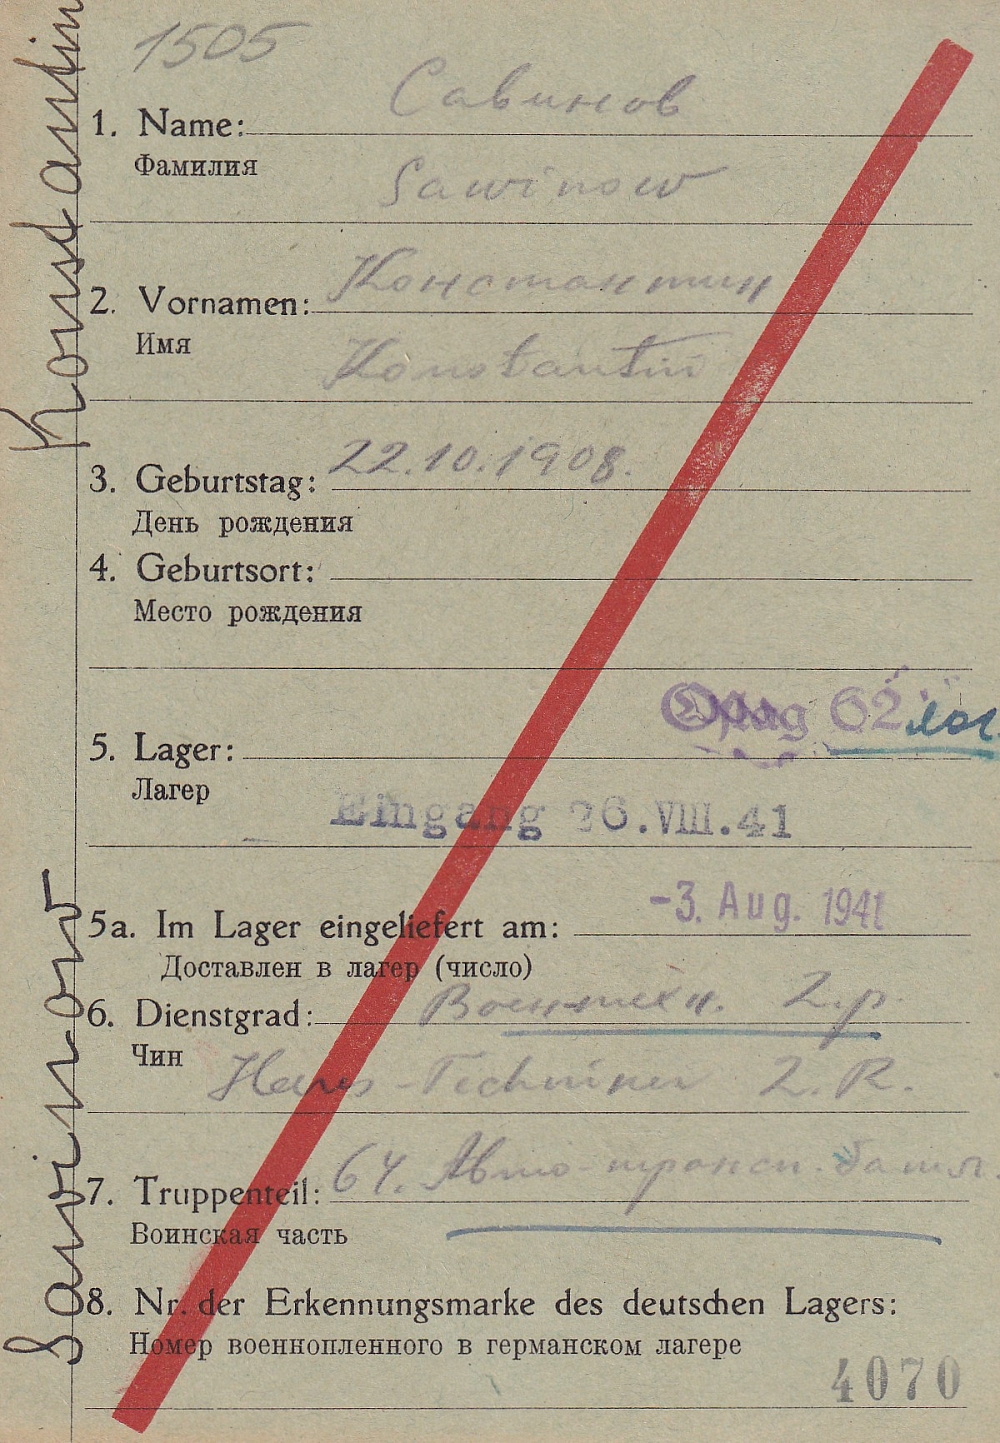 1505
Савинов
1. Name:
Фамилия
Sawinow
Константин
2. Vornamen:
Имя
Konstantin
3. Geburtstag: 22.10.1908.
День рождения
4. Geburtsort:
Место рождения
Oflag 62
5. Lager:
Лагер
Eingang 26.VIII.41
-3. Aug. 1941
5a. Im Lager eingeliefert am:
Доставлен в лагер (число)
6. Dienstgrad: Воентехн. 2.р.
Чин
-Techniker 2. R.
7. Truppenteil: 64. Авто-трансп. батл.
Воинская часть
8. Nr. der Erkennungsmarke des deutschen Lagers:
Номер военнопленного в германском лагере
4070
Sawinow Konstantin